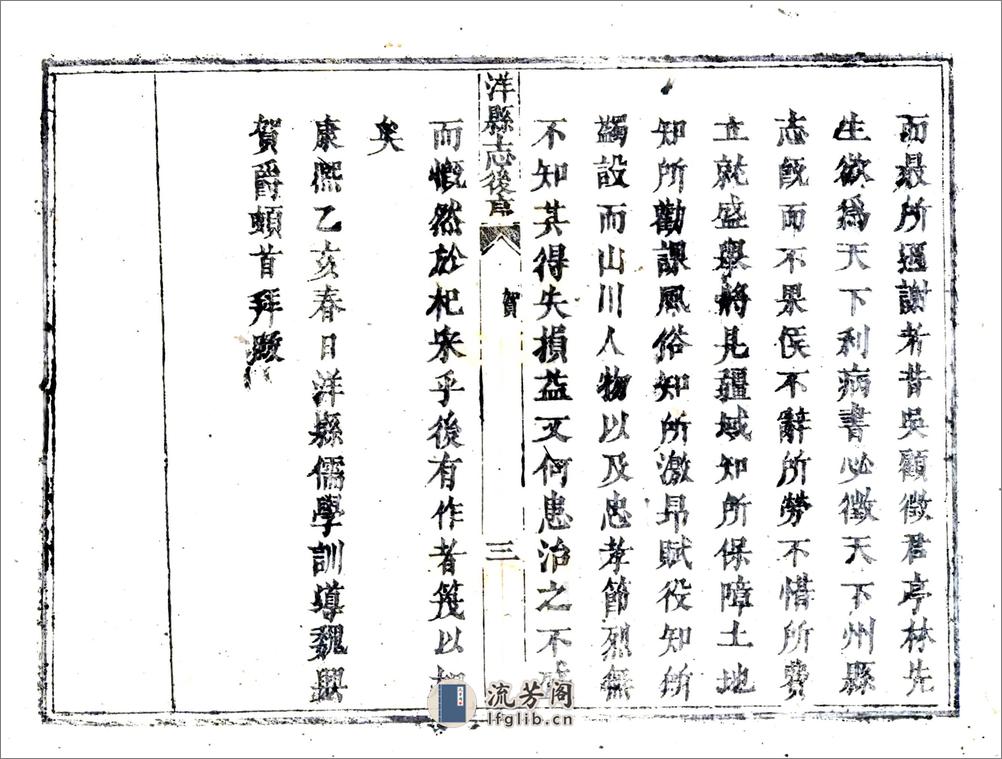 而最所遜謝者昔吳顧徵君亭林先
生欲爲天下利病書必徵天下州縣
志旣而不果侯不辭所勞不惜所費
立就盛舉將見疆域知所保障土地
知所勸課風俗知所激昻賦役知所
蠲設而山川人物以及忠孝節烈無
不知其得失損益又何患治之不
洋縣志後序
賀
三
而慨然於杞宋乎後有作者筏以
矣
康熙乙亥春日洋縣儒學訓導魏興
賀爵頓首拜題
流芳阁
lfglib.cn